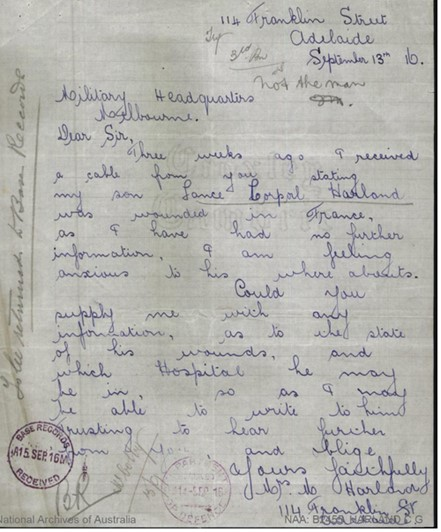 114 Franklin Street
Adelaide
September 13th 16.
not the man
Military Headquarters
Melbourne.
Dear Sir,
Three weeks ago I received
a cable from you stating
my son Lance Corpol Harland
was wounded in France,
as I have had no further
information, I am feeling
anxious to his where abouts.
Could you
supply me with any
information, as to the state
of his wounds, and
which Hospital he may
be in, so as I may
be able to write to him
trusting to hear further
from you and oblige
Yours faithfully
Harland
114 Franklin St
To be returned to Base Records
BASE RECORDS
15 SEP. 16
RECEIVED
National Archives of Australia
NAA: B2455,